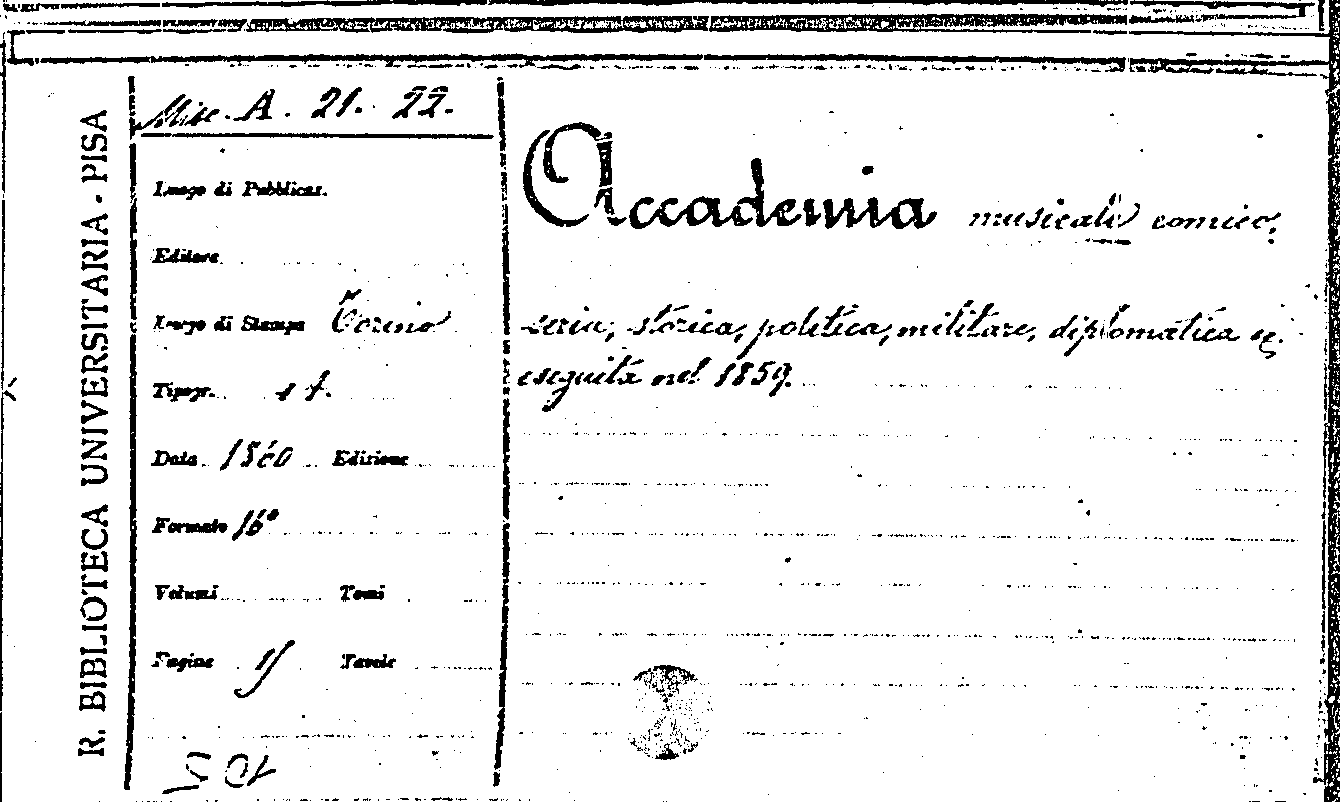 R. BIBLIOTECA UNIVERSITARIA - PISA
Misc. A. 21. 22.
Luogo di Pubblicaz.
Editore
Luogo di Stampa Torino
Tipogr.
Data 1860 Edizione
Formato 16°
Volumi Tomi
Pagine Tavole
Accademia musicale comico,
seria, storica, politica, militare, diplomatica
eseguita nel 1859.